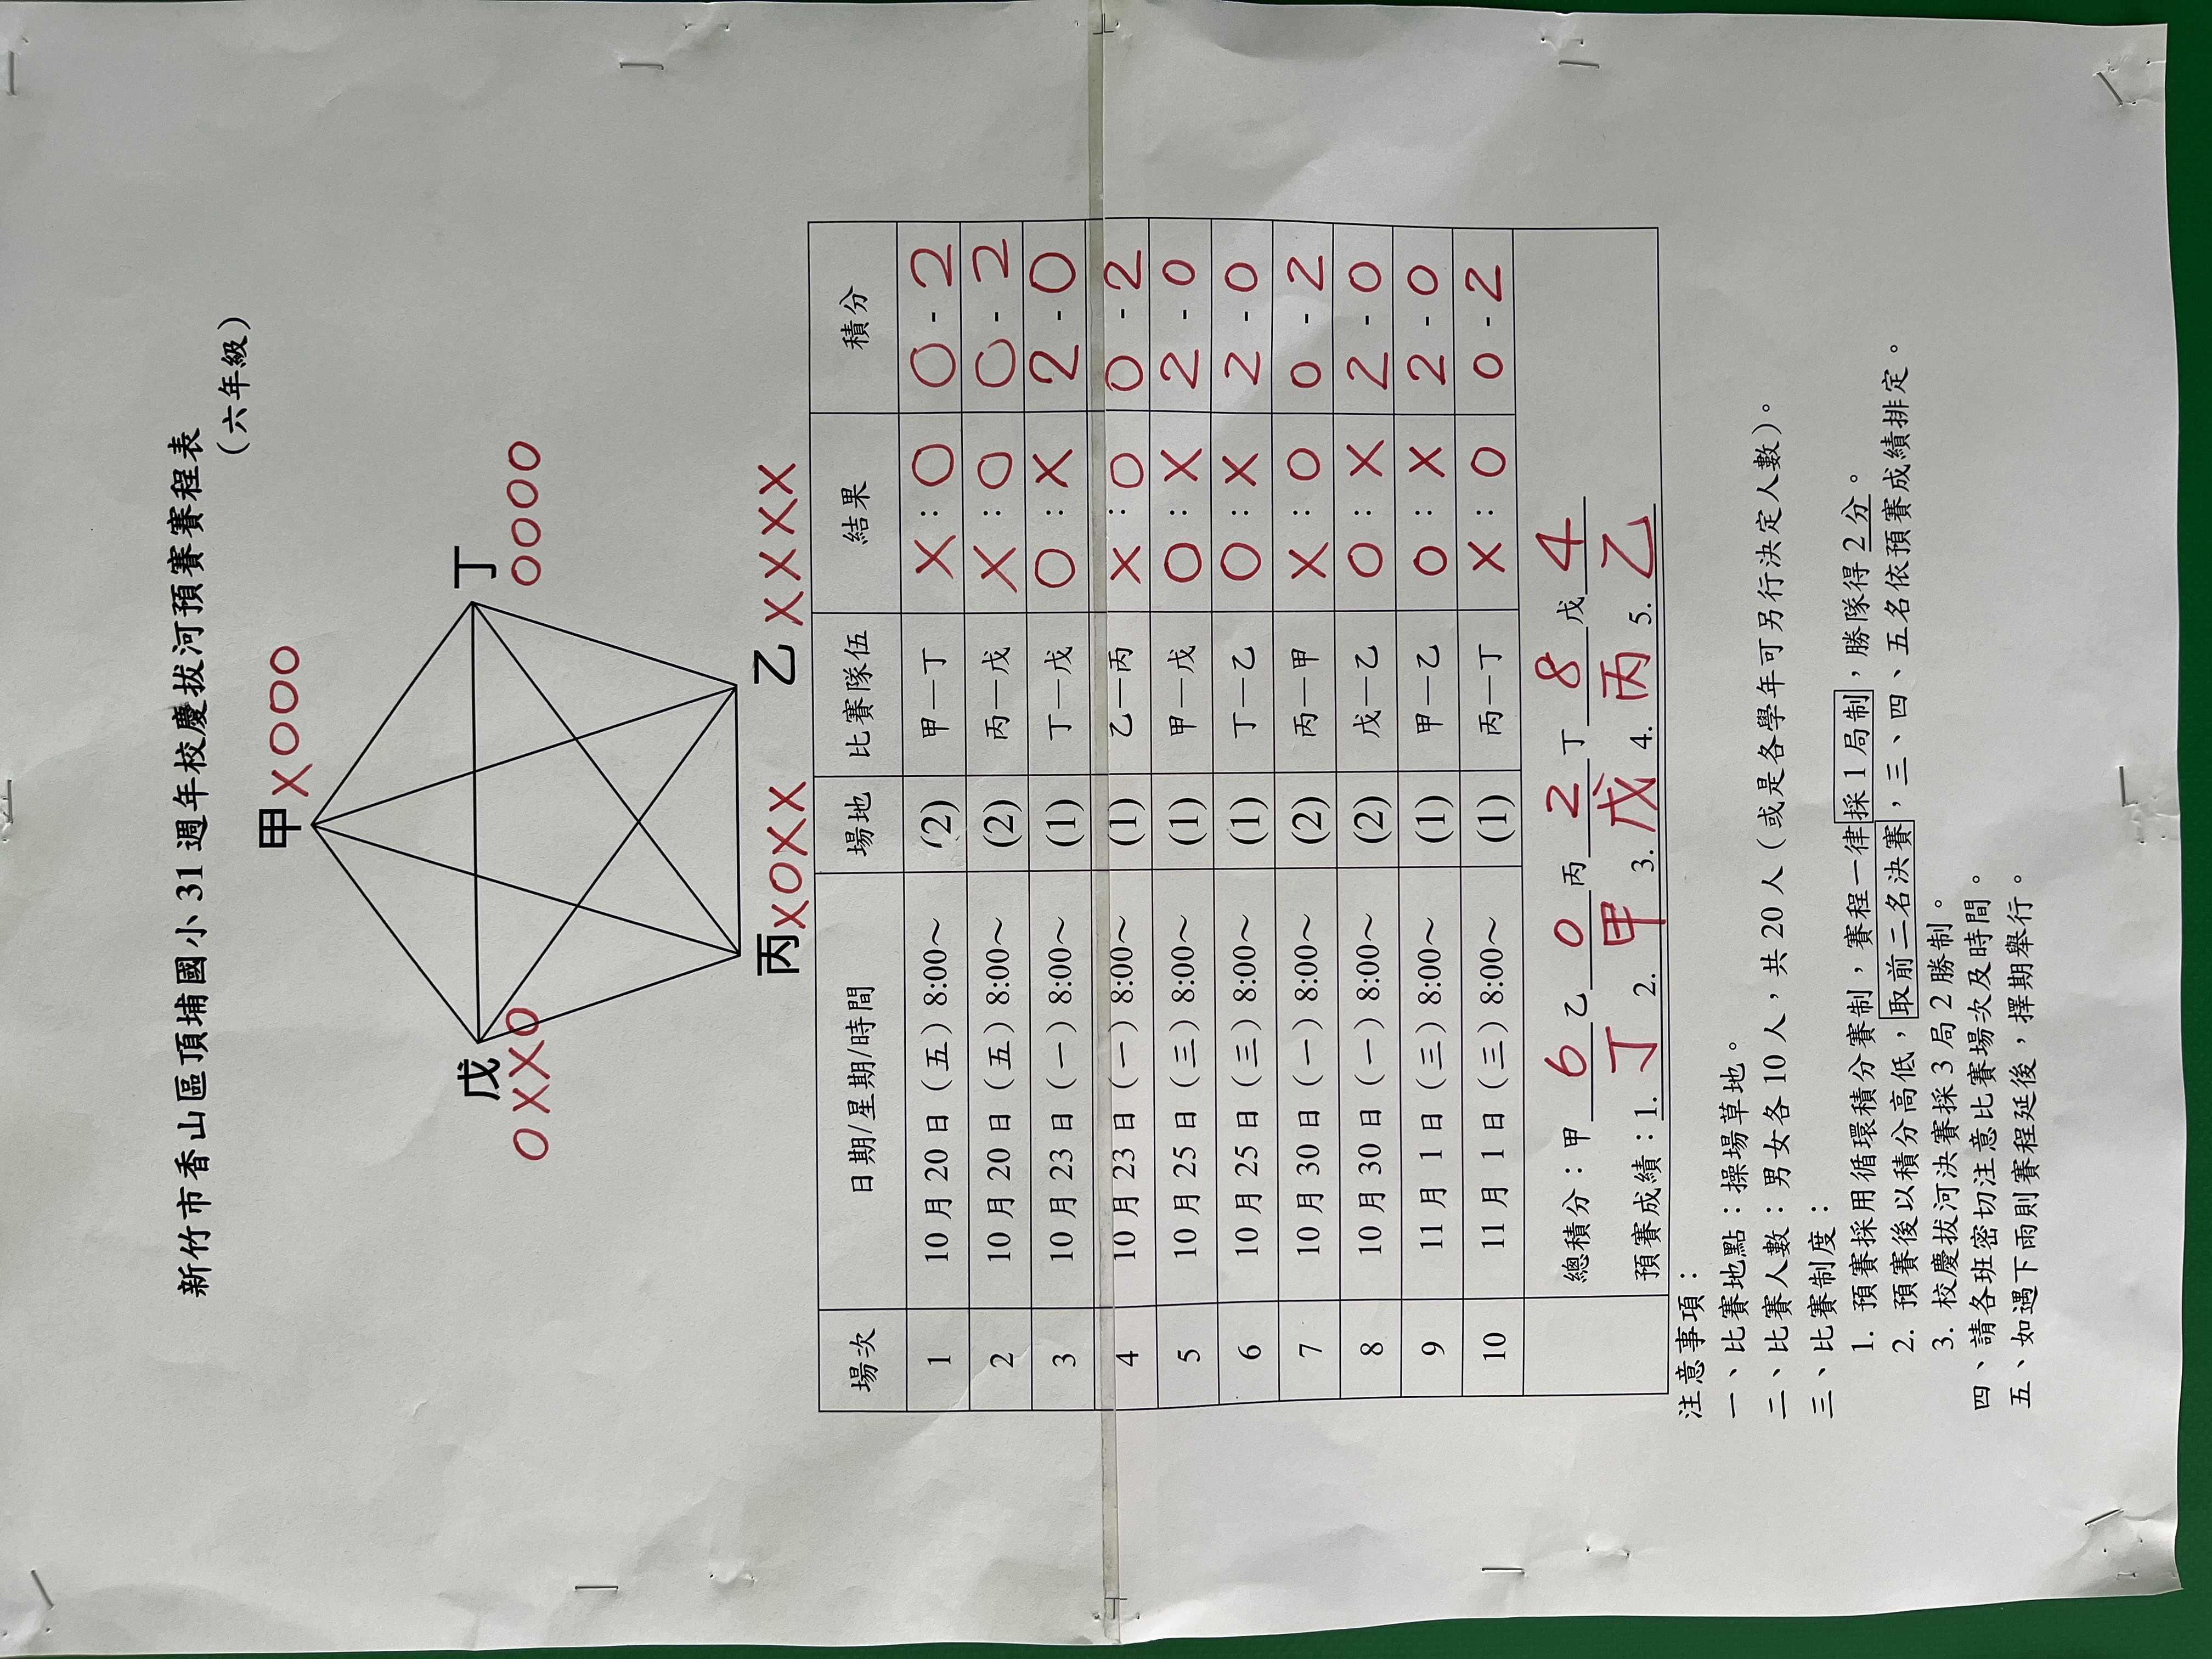 新竹市香山區頂埔國小 31 週年校慶拔河預賽賽程表
(六年級)
甲
X O O O
丁
O O O O
戊
O X X O
丙 X O X X
乙 X X X X
場次 日期/星期/時間 場地 比賽隊伍 結果 積分
1 10 月 20 日（五）8:00～ (2) 甲—丁 X : O 0 - 2
2 10 月 20 日（五）8:00～ (2) 丙—戊 X : O 0 - 2
3 10 月 23 日（一）8:00～ (1) 丁—戊 O : X 2 - 0
4 10 月 23 日（一）8:00～ (1) 乙—丙 X : O 0 - 2
5 10 月 25 日（三）8:00～ (1) 甲—戊 O : X 2 - 0
6 10 月 25 日（三）8:00～ (1) 丁—乙 O : X 2 - 0
7 10 月 30 日（一）8:00～ (2) 丙—甲 X : O 0 - 2
8 10 月 30 日（一）8:00～ (2) 戊—乙 O : X 2 - 0
9 11 月 1 日（三）8:00～ (1) 甲—乙 O : X 2 - 0
10 11 月 1 日（三）8:00～ (1) 丙—丁 X : O 0 - 2
總積分：甲 6 乙 0 丙 2 丁 8 戊 4
預賽成績：1. 丁 2. 甲 3. 戊 4. 丙 5. 乙
注意事項：
一、比賽地點：操場草地。
二、比賽人數：男女各 10 人，共 20 人（或是各學年可另行決定人數）。
三、比賽制度：
1. 預賽採用循環積分賽制，賽程一律採 1 局制，勝隊得 2 分。
2. 預賽後以積分高低，取前二名決賽，三、四、五名依預賽成績排定。
3. 校慶拔河決賽採 3 局 2 勝制。
四、請各班密切注意比賽場次及時間。
五、如遇下雨則賽程延後，擇期舉行。